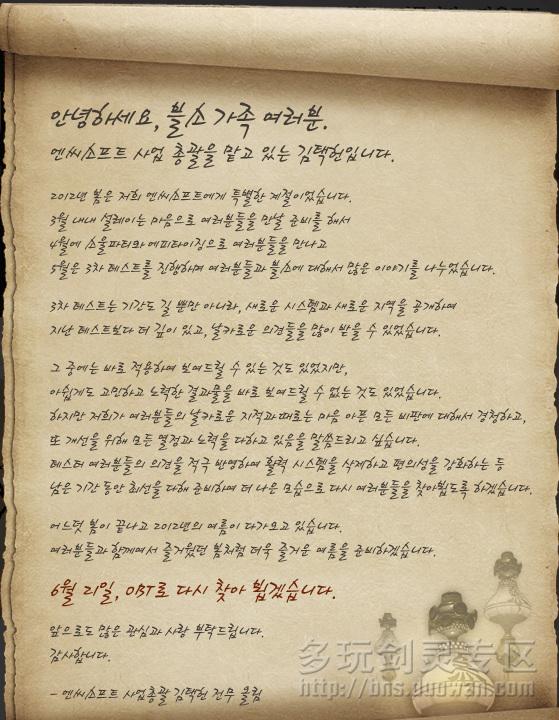 안녕하세요, 블소 가족 여러분.
엔씨소프트 사업 총괄을 맡고 있는 김택헌입니다.
2012년 봄은 저희 엔씨소프트에게 특별한 계절이었습니다.
3월 내내 설레이는 마음으로 여러분들을 만날 준비를 해서
4월에 소울파티와 에피타이징으로 여러분들을 만나고
5월은 3차 테스트를 진행하며 여러분들과 블소에 대해서 많은 이야기를 나누었습니다.
3차 테스트는 기간도 길 뿐만 아니라, 새로운 시스템과 새로운 지역을 공개하며
지난 테스트보다 더 깊이 있고, 날카로운 의견들을 많이 받을 수 있었습니다.
그 중에는 바로 적용하여 보여드릴 수 있는 것도 있었지만,
아쉽게도 고민하고 노력한 결과물을 바로 보여드릴 수 없는 것도 있었습니다.
하지만 저희가 여러분들의 날카로운 지적과 때로는 마음 아픈 모든 비판에 대해서 경청하고,
또 개선을 위해 모든 열정과 노력을 다하고 있음을 말씀드리고 싶습니다.
테스터 여러분들의 의견을 적극 반영하여 활력 시스템을 삭제하고 편의성을 강화하는 등
남은 기간 동안 최선을 다해 준비하여 더 나은 모습으로 다시 여러분들을 찾아뵙도록 하겠습니다.
어느덧 봄이 끝나고 2012년의 여름이 다가오고 있습니다.
여러분들과 함께여서 즐거웠던 봄처럼 더욱 즐거운 여름을 준비하겠습니다.
6월 21일, OBT로 다시 찾아 뵙겠습니다.
앞으로도 많은 관심과 사랑 부탁드립니다.
감사합니다.
- 엔씨소프트 사업총괄 김택헌 전무 올림
多玩剑灵专区
http://bns.duowan.com